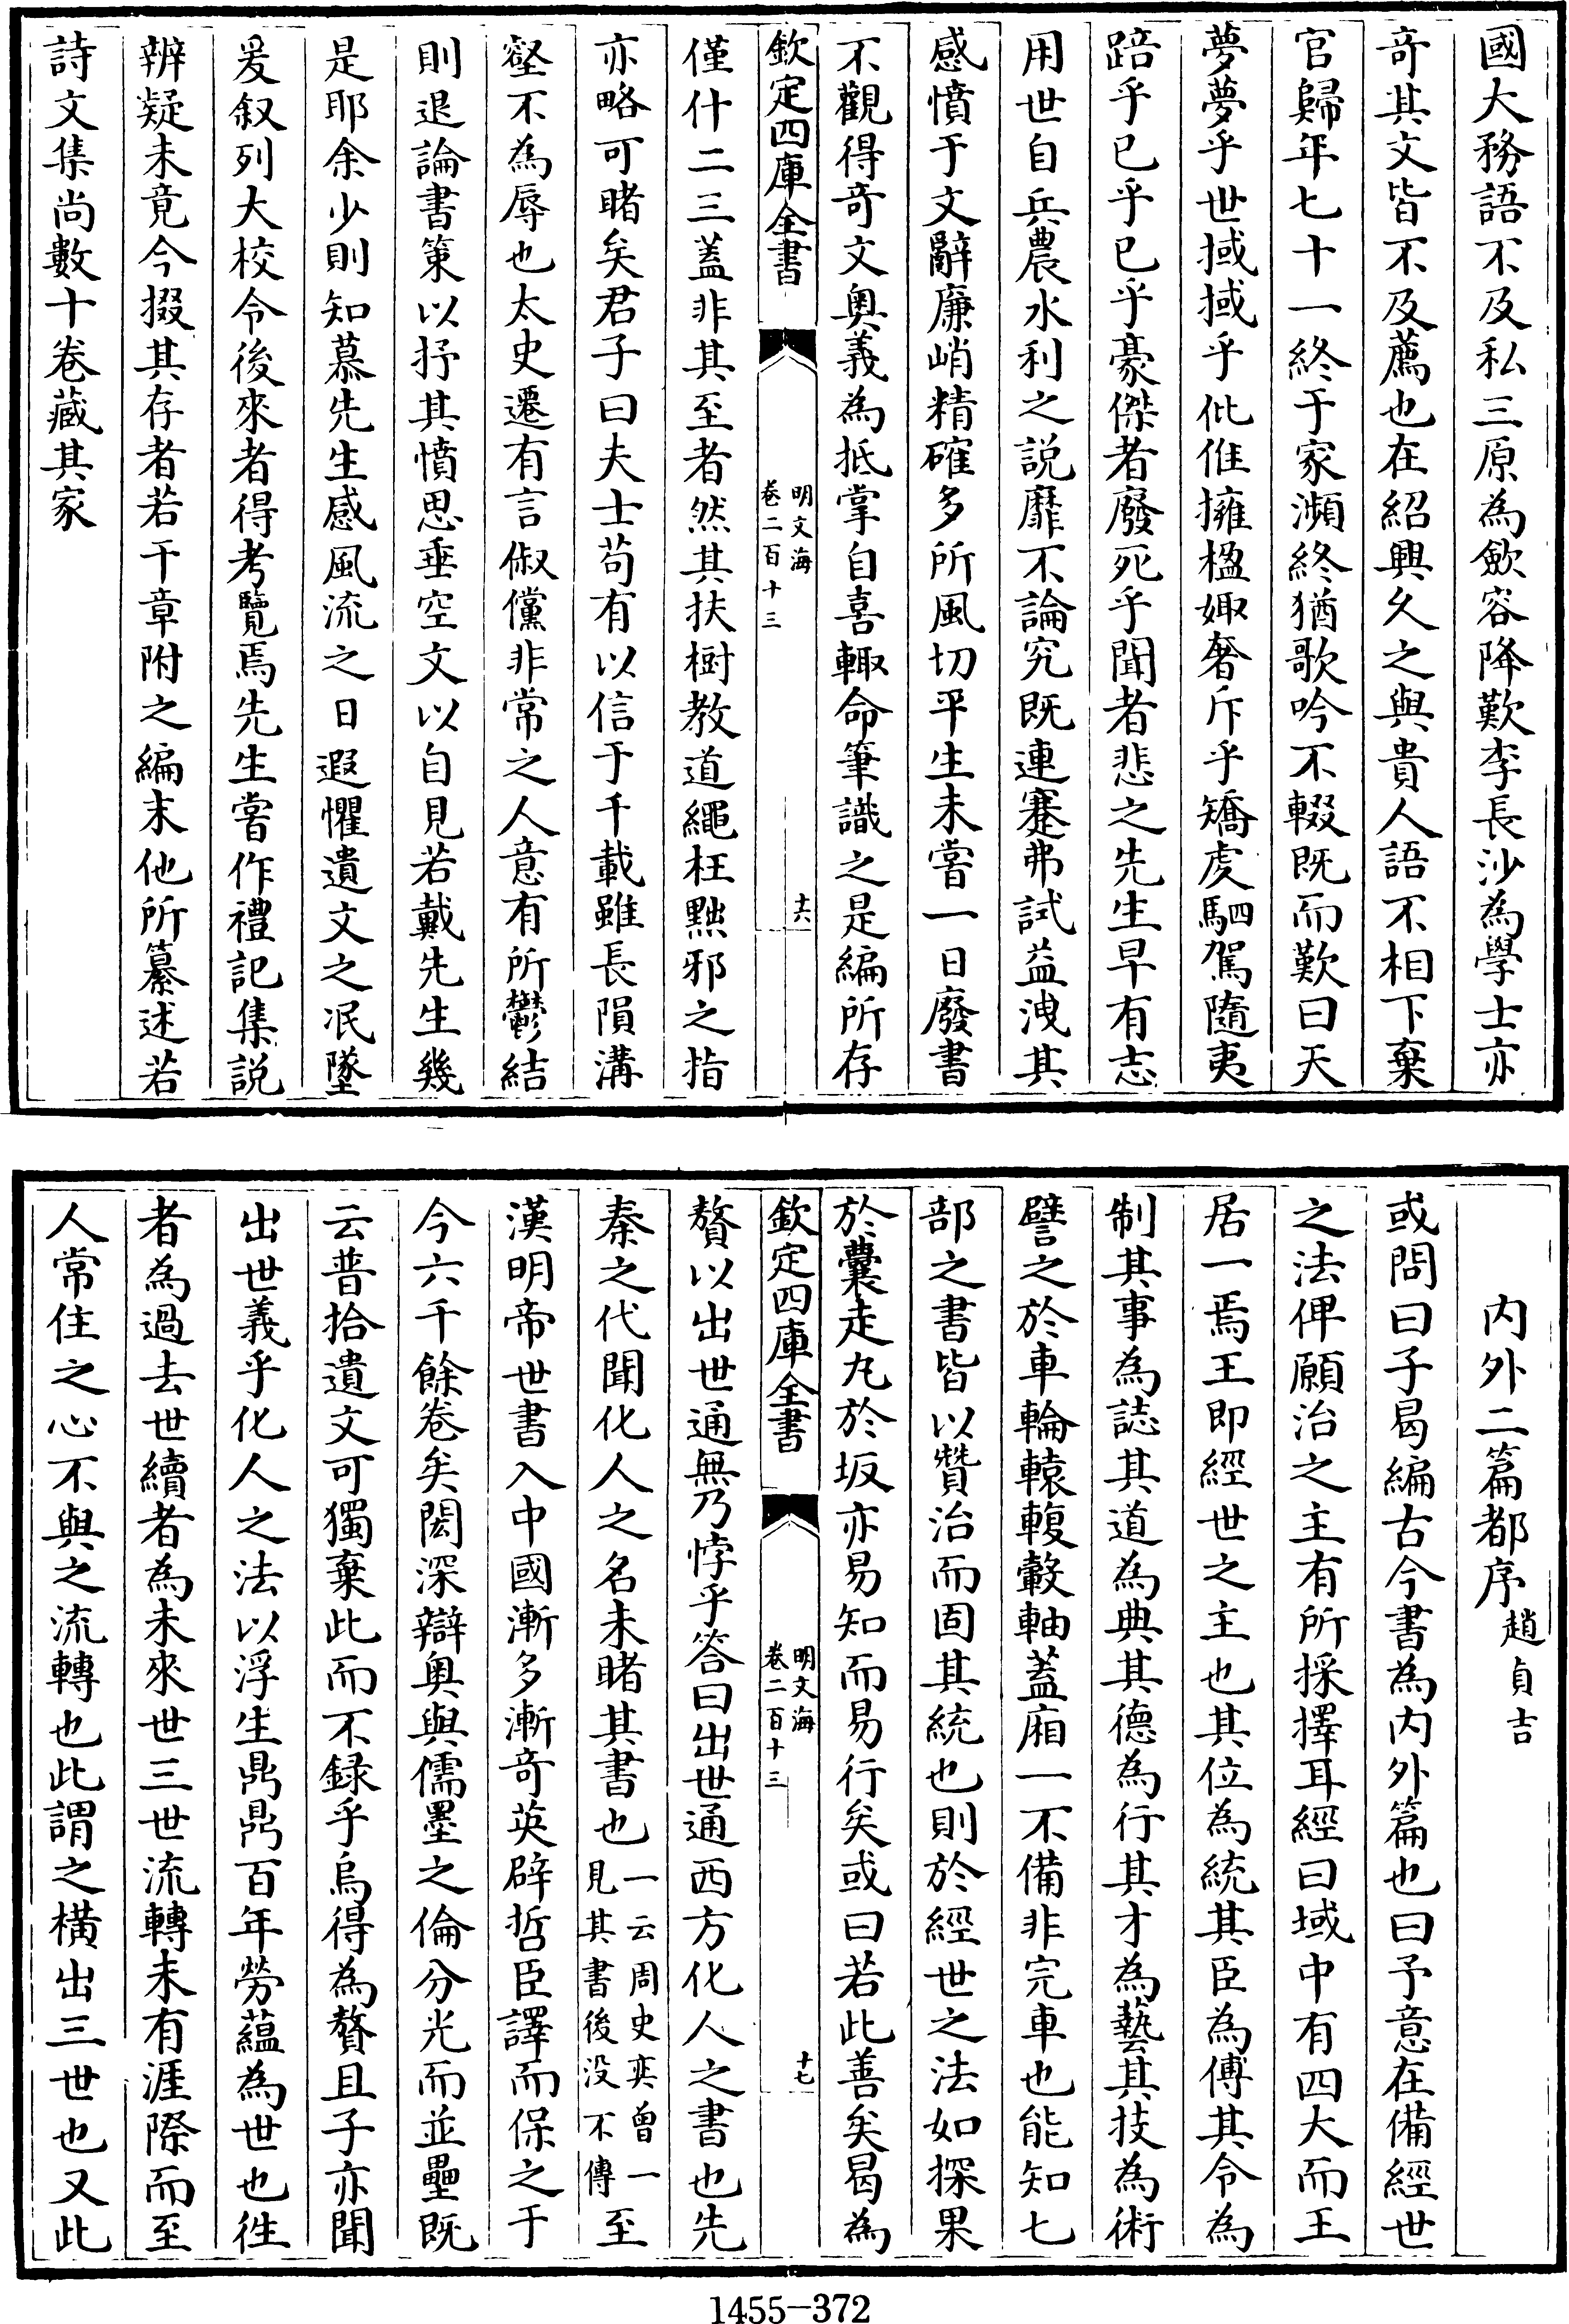 國大務語不及私三原為斂容降歎李長沙為學士亦
奇其文皆不及薦也在紹興久之與貴人語不相下棄
官歸年七十一終于家瀕終猶歌吟不輟既而歎曰天
夢夢乎世掝掝乎仳倠擁楹娵奢斥乎矯虔駟駕隨夷
踣乎已乎已乎豪傑者廢死乎聞者悲之先生早有志
用世自兵農水利之說靡不論究既連蹇弗試益洩其
感憤于文辭廉峭精確多所風切平生未嘗一日廢書
不觀得奇文奧義為抵掌自喜輙命筆識之是編所存
欽定四庫全書
明文海
卷二百十三
十六
僅什二三蓋非其至者然其扶樹教道繩枉黜邪之指
亦略可睹矣君子曰夫士苟有以信于千載雖長隕溝
壑不為辱也太史遷有言俶儻非常之人意有所鬱結
則退論書策以抒其憤思垂空文以自見若戴先生幾
是耶余少則知慕先生感風流之日遐懼遺文之泯墜
爰叙列大校令後來者得考覽焉先生嘗作禮記集說
辨疑未竟今掇其存者若干章附之編末他所纂述若
詩文集尚數十卷藏其家
內外二篇都序趙貞吉
或問曰子曷編古今書為內外篇也曰予意在備經世
之法俾願治之主有所採擇耳經曰域中有四大而王
居一焉王即經世之主也其位為統其臣為傅其令為
制其事為誌其道為典其德為行其才為藝其技為術
譬之於車輪轅輹轂軸蓋廂一不備非完車也能知七
部之書皆以贊治而固其統也則於經世之法如探果
於囊走丸於坂亦易知而易行矣或曰若此善矣曷為
欽定四庫全書
明文海
卷二百十三
十七
贅以出世通無乃悖乎答曰出世通西方化人之書也先
秦之代聞化人之名未睹其書也一云周史奕曾一見其書後没不傳至
漢明帝世書入中國漸多漸奇英辟哲臣譯而保之于
今六千餘卷矣閎深辯奥與儒墨之倫分光而並壘既
云普拾遺文可獨棄此而不録乎烏得為贅且子亦聞
出世義乎化人之法以浮生鼎鼎百年勞蘊為世也徃
者為過去世續者為未來世三世流轉未有涯際而至
人常住之心不與之流轉也此謂之橫出三世也又此
1455—372